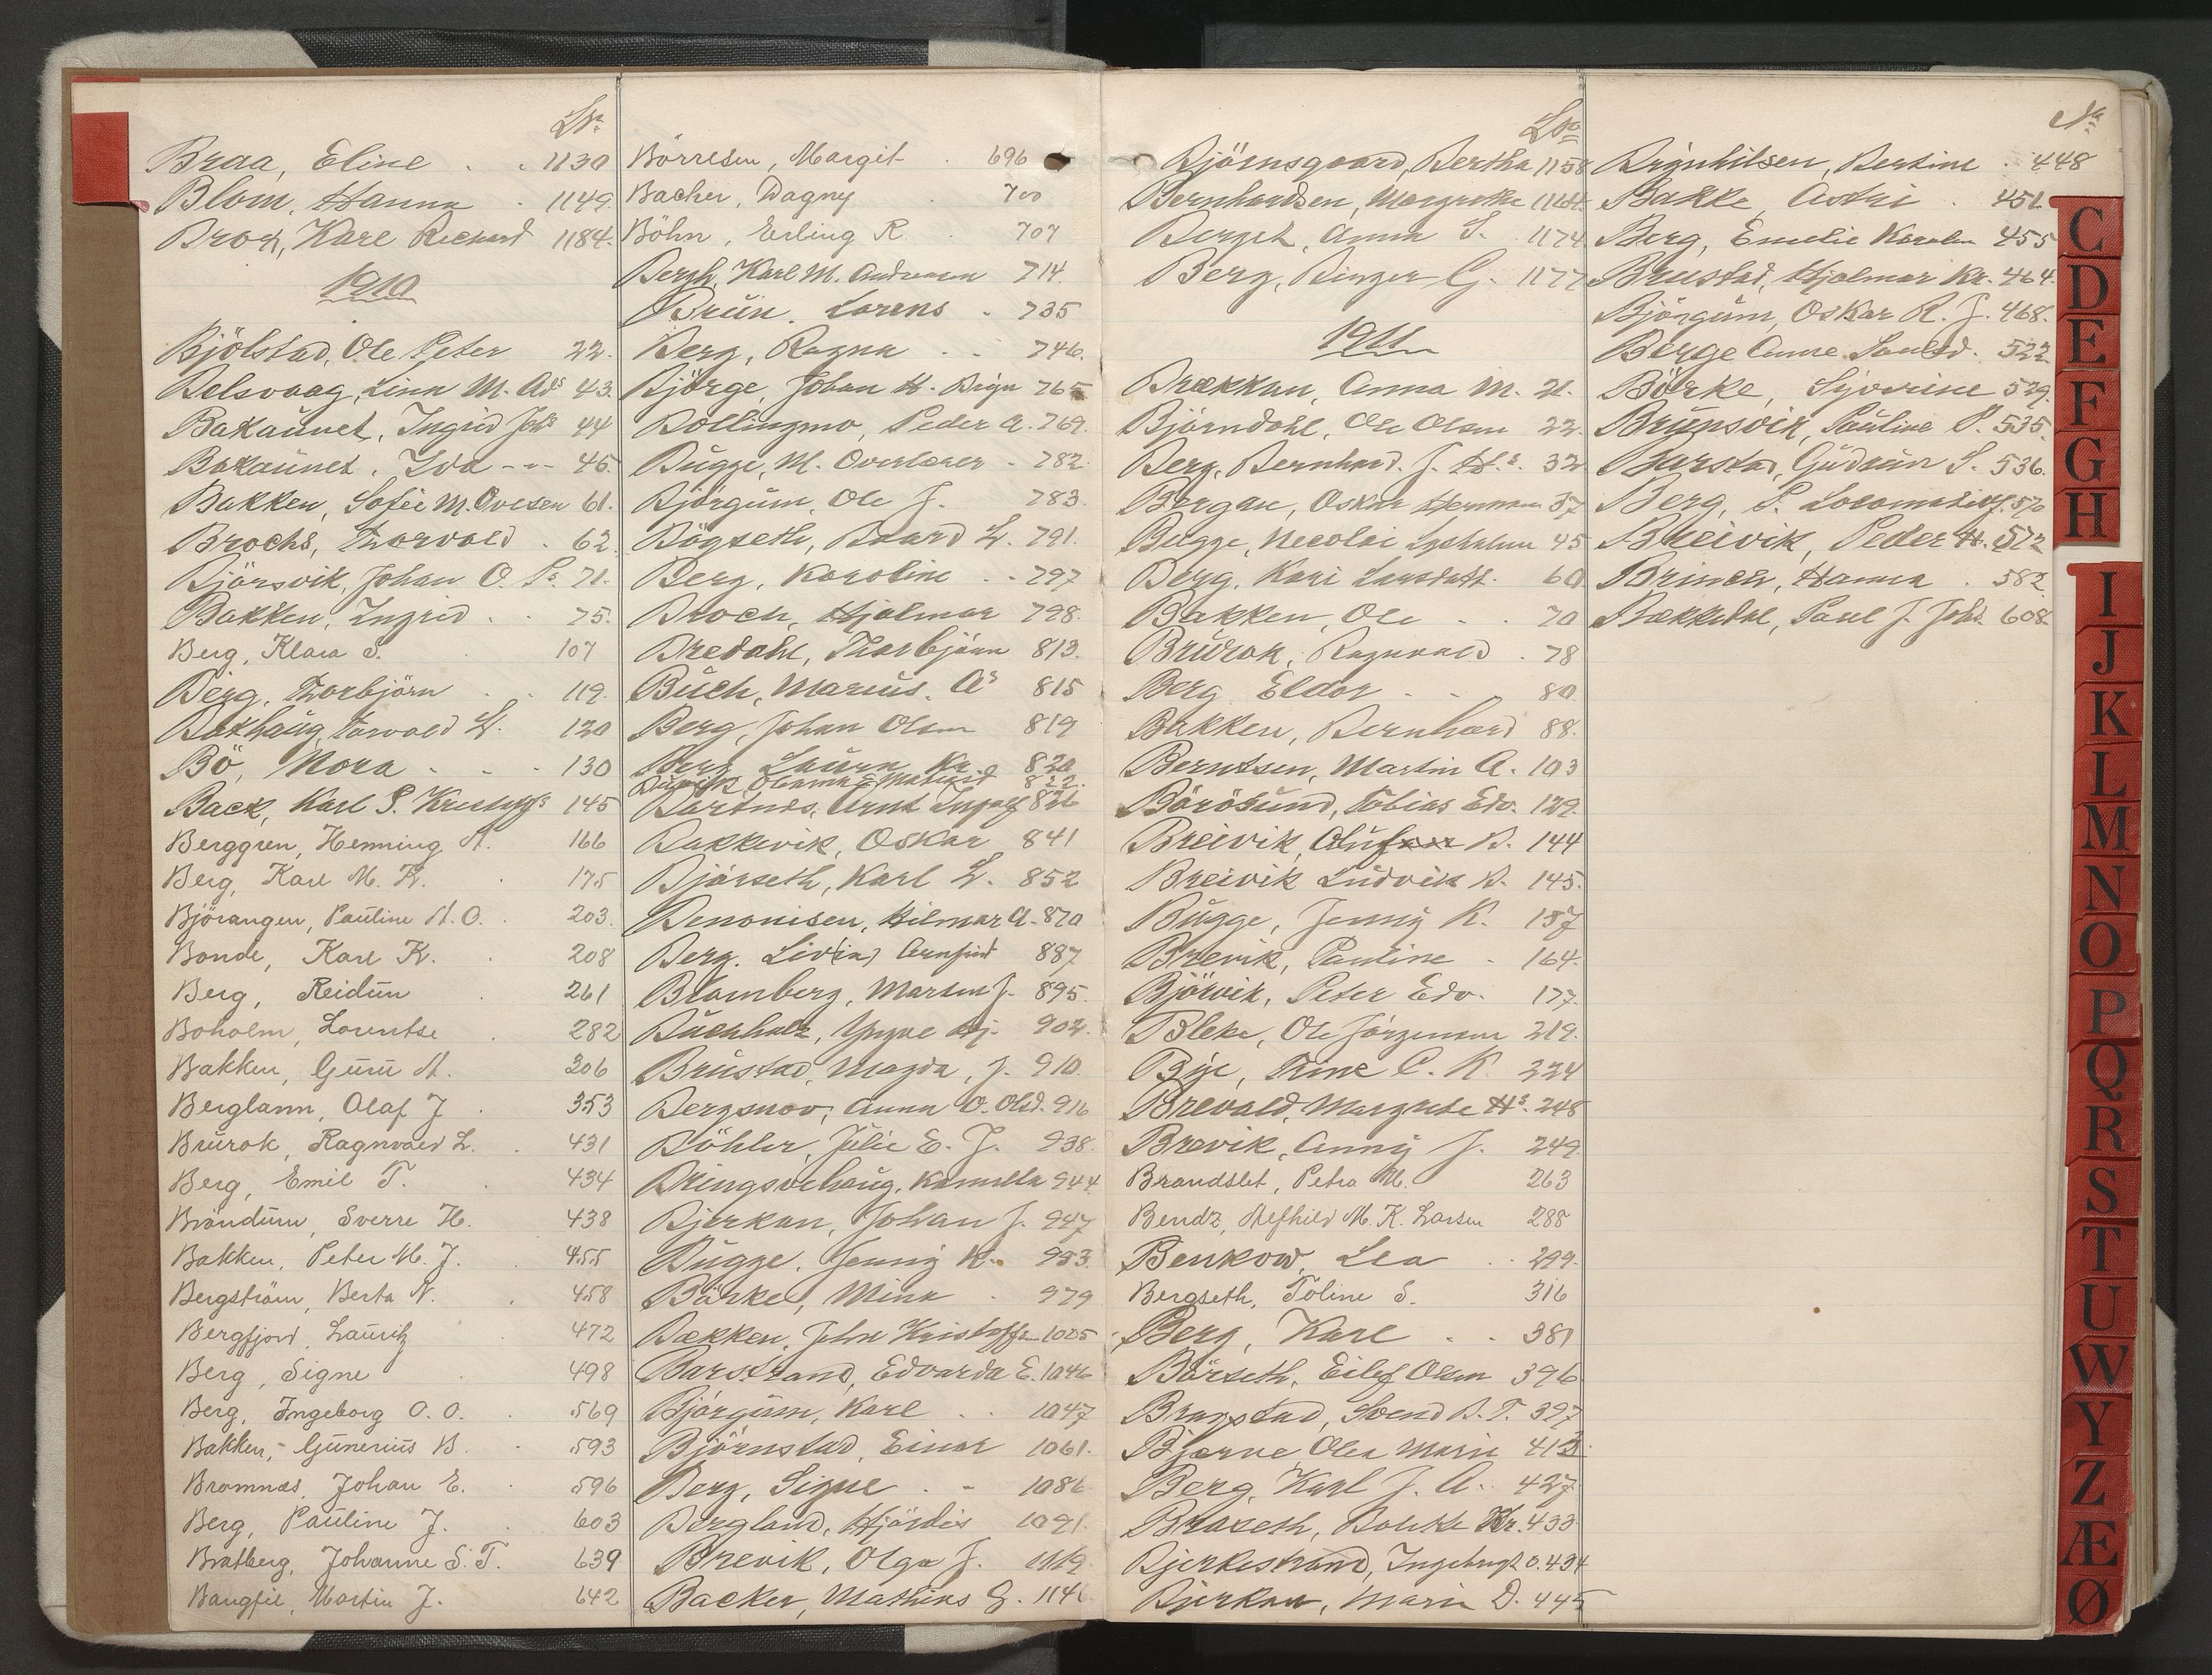 No.
Braa, Eline 1130
Blom, Hanna 1149
Broch, Karl Richard 1184.
1910
Bjölstad, Ole Peter 22.
Belsvaag, Linn M. Ads 43.
Bakaunet, Ingrid Johs 44
Bakaunet, Ida -"- 45.
Bakken, Sofie M. Ovesen 61.
Brochs, Thorvald 62.
Björsvik, Johan O. Ps. 71.
Bakken, Ingrid 75.
Berg, Klara S. 107
Berg, Thorbjörn 119.
Bakhaug, Torvald L. 120
Bö, Nora 130
Back, Karl S. 145
Berggren, Henning A. 166
Berg, Karl M. K. 175
Björangen, Pauline A. O. 203
Bonde, Karl K. 208
Berg, Reidun 261
Boholm, Lorentse 282
Bakken, Guru A. 306
Berglann, Olaf J 353
Brurok, Ragnvald L. 431
Berg, Emil T. 434
Bröndum, Sverre H. 438
Bakken, Peter M. J. 455
Bergström, Berta N. 458
Bergfjord, Lauritz 472
Berg, Signe 498
Berg, Ingeborg O. O. 569
Bakken, Gunerius B. 593
Bromnæs, Johan E. 596
Berg, Pauline J. 603
Bratberg, Johanne S. T. 639
Bangfil, Martin J. 642
Börresen, Margit 696
Bacher, Dagny 700
Böhn, Erling R. 707
Bergh, Karl M. Andersen 714.
Bruun, Lorens 735
Berg, Ragna 746.
Björge, Johan H. Bryn 765
Bollingmo, Peder A. 769.
Bugge, M. Overlærer 782.
Björgum, Ole J. 783.
Bögseth, Baard L. 791.
Berg, Karoline 797
Broch, Hjalmar 798.
Bredahl, Thorbjörn 813.
Buch, Marius. As 815
Berg, Johan Olsen 819
Berg, Laura Ka. 820
822.
Bartnes, Arnt Ingolf 826
Bakkevik, Oskar 841
Bjørseth, Karl L. 852
Benonisen, Hilmar A. 870
Berg. Liv(in) Arnfind 887
Blomberg, Marten J. 895
Buchholz, Yngve Hj. 902.
Brustad, Magda, J. 910.
Bergsnov, Anna O. Olsd. 916
Böhler, Julie E. J. 938.
Bringsvehaug, Kamilla 944
Bjerkan, Johan J. 947
Bugge, Jenny K. 953.
Börke, Mina 979
Bækken, John Kristoffersen 1005
Barstrand, Edvarda E. 1046
Björgum, Karl 1047
Björnstad, Einar 1061.
Berg, Signe 1086
Bergland, Hjördis 1091.
Brevik, Olga J. 1119.
Backer, Mathias G. 1146
No.
Björnsgaard, Bertha 1158
Bernhardsen, Margrethe 1164.
Berget, Anna S. 1174
Berg, Birger G. 1177
1911
Brækkan, Anna M. 21.
Björndahl, Ole Olsen 22.
Berg, Bernhard. J. H.s. 32.
Bergan, Oskar Herman 37
Bugge, Necolai Lysholm 45
Berg, Kari Larsdatt. 60
Bakken, Ole 70
Brurok, Ragnvald 78
Berg Eldor 80.
Bakken, Bernhard 88.
Berntsen, Martin A. 103
Börösund, Tobias Edv. 129.
Breivik, Oluf B. 144
Breivik Ludvik B. 145.
Bugge, Jenny K. 157
Brevik, Pauline 164.
Björvik, Peter Edv. 177.
Bleke, Ole Jörgensen 219.
Bye, Trine C. K. 224
Brevald, Margrete Hs. 248
Brevik, Anny J. 249.
Brandslet, Petra M. 263
Bendz, Alfhild M. K. Larsen 288
Benkow, Lea 299.
Bergseth, Toline S. 316
Berg, Karl 381
Börseth, Eilef Olsen 396
Bragstad, Svend B. T. 397
Bjerve Olea Marie 413.
Berg, Karl J. A. 427
Braseth, Bolette Kr. 433
Bjerkestrand, Ingebrigt O. 434
Bjerkan, Marie D. 445
No
Brynhilsen, Bertine 448
Bakke, Astri 451.
Berg, Emelie Karoline 455
Brustad, Hjalmar Kr. 464.
Björgum, Oskar R. J. 468.
Berge Anne Paulsd. 522
Börke, Syverine 529.
Brunsvik, Pauline P. 535.
Barstad, Gudrun S. 536.
Berg, P. Lokomotivf. 570
Breivik, Peder H. 572
Brinch, Hanna 582
Bækkedal, Paul J. Johs. 608.
C
D
E
F
G
H
I
J
K
L
M
N
O
P
Q
R
S
T
U
W
Y
Z
Æ
Ø